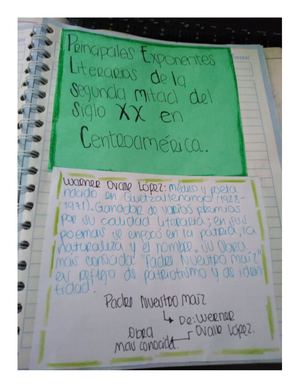 Principales Exponentes
Literarios de la
segunda mitad del
siglo XX en
Centroamérica.
Werner Ovalle López: médico y poeta
nacido en Quetzaltenango (1928-
1971). Ganador de varios premios
por su calidad literaria; en sus
poemas se enfocó en la patria, la
naturaleza y el hombre. Su Obra
más conocida "Padre Nuestro maíz"
es reflejo de patriotismo y de iden-
tidad.
Padre Nuestro maíz
De: Werner
Ovalle López.
Obra
más conocida